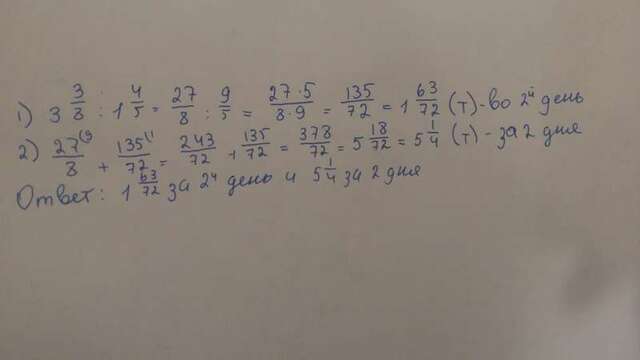 1) 3 3/8 : 1 4/5 = 27/8 : 9/5 = 27·5/8·9 = 135/72 = 1 63/72 (т)-во 2й день
2) 27(9/8 + 135(1/72 = 243/72 + 135/72 = 378/72 = 5 18/72 = 5 1/4 (т) - за 2 дня
Ответ: 1 63/72 за 2й день и 5 1/4 за 2 дня